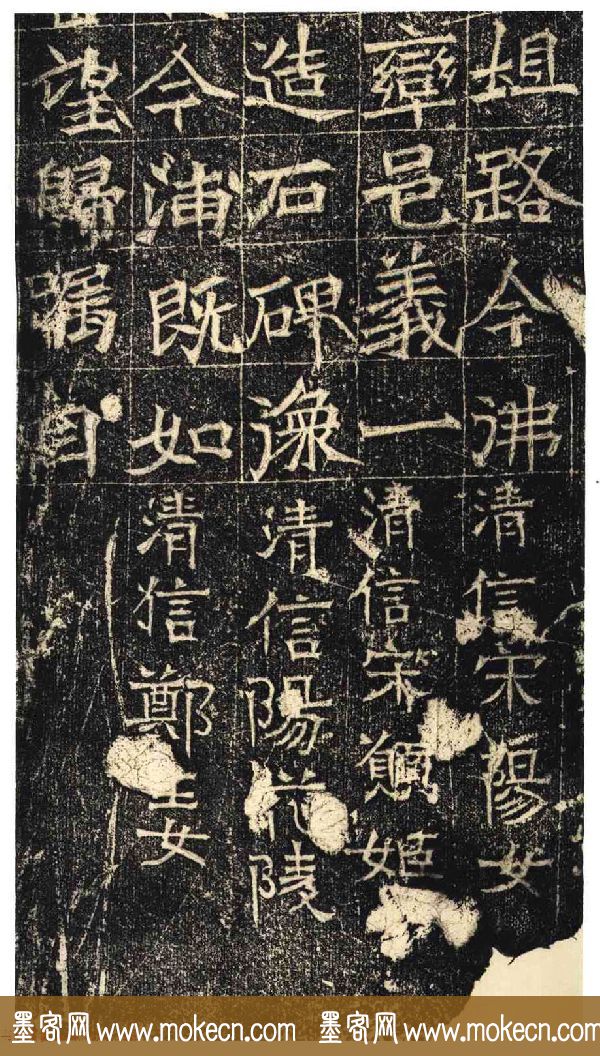 俎路今沸清信宋陽女
犖邑義一清信宋顯姬
造石碑像清信陽花陵
今浦既如清信鄭上女
望歸矚自
墨客网 www.mokecn.com 墨客网 www.mokecn.com